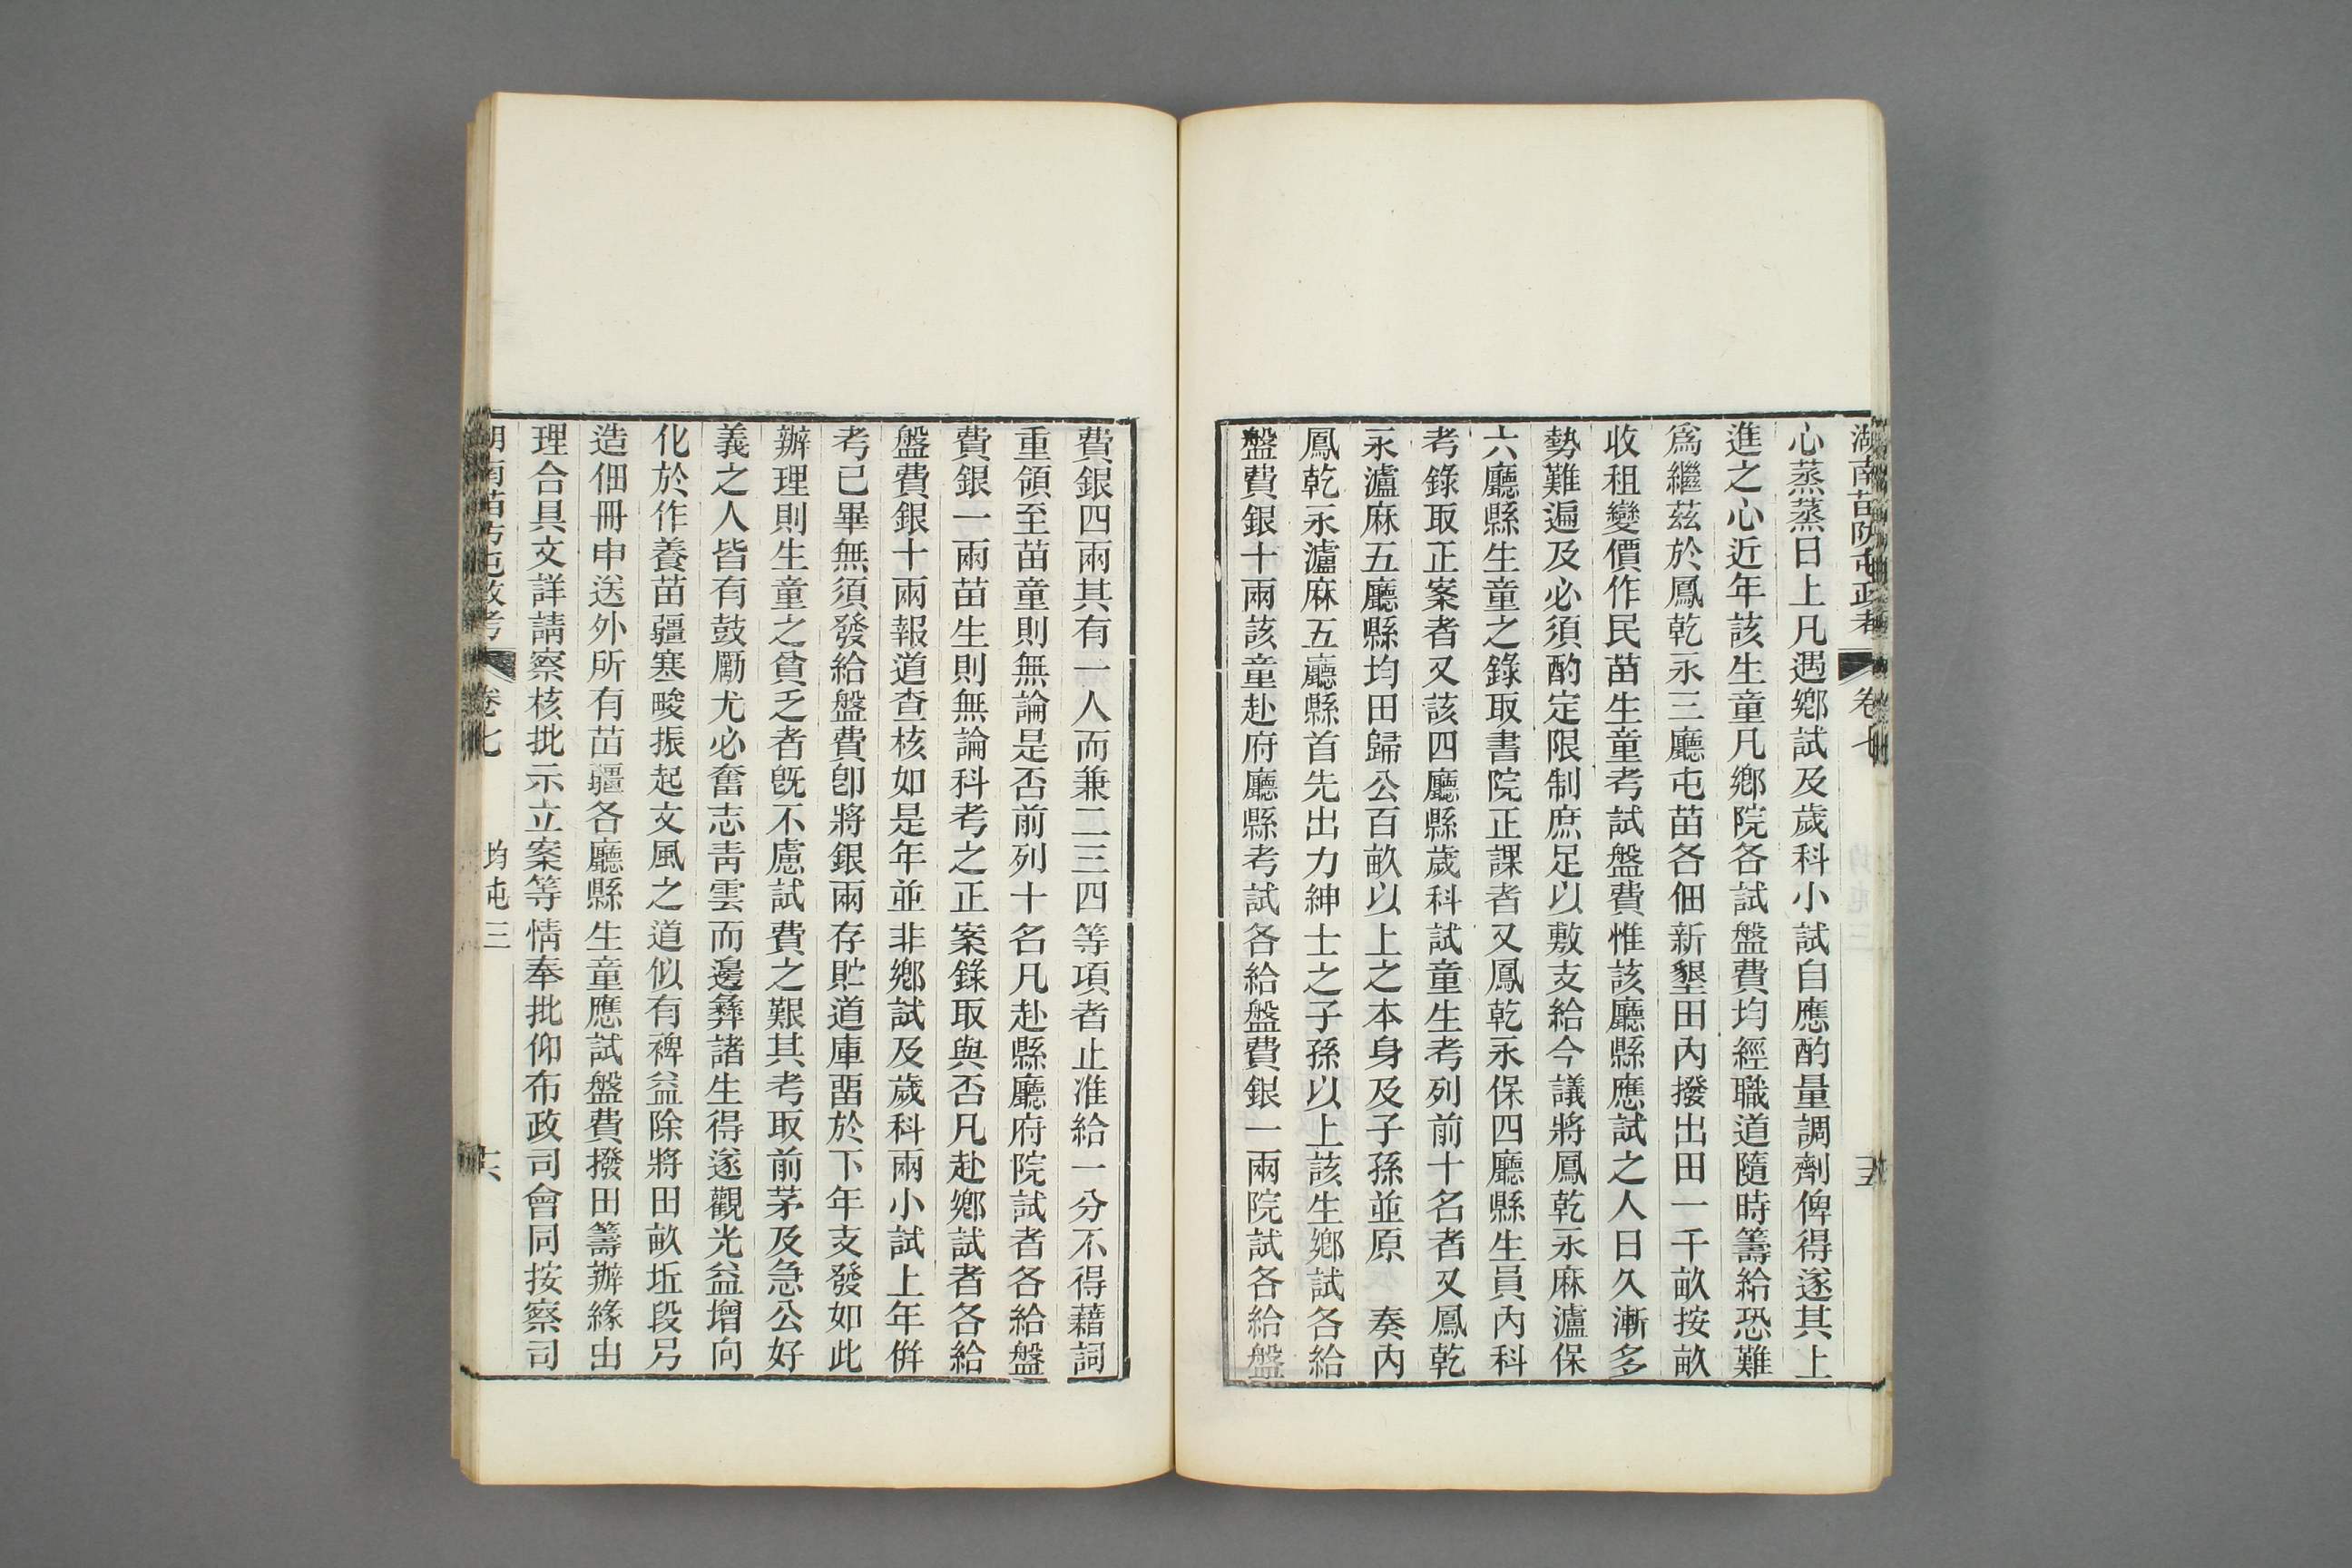 湖南苗防屯政考 卷七 十五
心蒸蒸日上凡遇鄉試及歲科小試自應酌量調劑俾得遂其上
進之心近年該生童凡鄉院各試盤費均經職道隨時籌給恐難
爲繼茲於鳳乾永三廳屯苗各佃新墾田內撥出田一千畝按畝
收租變價作民苗生童考試盤費惟該廳縣應試之人日久漸多
勢難遍及必須酌定限制庶足以敷支給今議將鳳乾永麻瀘保
六廳縣生童之錄取書院正課者又鳳乾永保四廳縣生員內科
考錄取正案者又該四廳縣歲科試童生考列前十名者又鳳乾
永瀘麻五廳縣均田歸公百畝以上之本身及子孫並原 奏內
鳳乾永瀘麻五廳縣首先出力紳士之子孫以上該生鄉試各給
盤費銀十兩該童赴府廳縣考試各給盤費銀一兩院試各給盤
費銀四兩其有一人而兼二三四等項者止准給一分不得藉詞
重領至苗童則無論是否前列十名凡赴縣廳府院試者各給盤
費銀一兩苗生則無論科考之正案錄取與否凡赴鄉試者各給
盤費銀十兩報道查核如是年並非鄉試及歲科兩小試上年倂
考已畢無須發給盤費卽將銀兩存貯道庫畱於下年支發如此
辦理則生童之貧乏者旣不慮試費之艱其考取前茅及急公好
義之人皆有鼓勵尤必奮志靑雲而邊彝諸生得遂觀光益增向
化於作養苗疆寒畯振起文風之道似有裨益除將田畝坵段另
造佃冊申送外所有苗疆各廳縣生童應試盤費撥田籌辦緣由
理合具文詳請察核批示立案等情奉批仰布政司會同按察司
湖南苗防屯政考 卷七 均屯三 十六